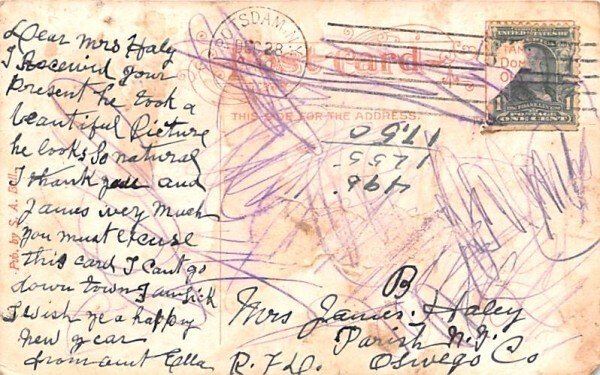 Dear Mrs Haly
I Received your
Present he took a
beautiful Picture
he looks So natural
I thank you and
James very much
you must excuse
this card I Cant go
down town I am Sick
I wish ye a happy
new year
from aunt Ella
POTSDAM, N.Y.
DEC 28
Post card
THIS SIDE FOR THE ADDRESS.
17.50
1255
498.
B
Mrs James. Haley
Parish N.Y.
Oswego Co
R.F.D.
Pub. by S. A.
UNITED STATES OF
FRANKLIN
POSTAGE
1 ONE CENT 1